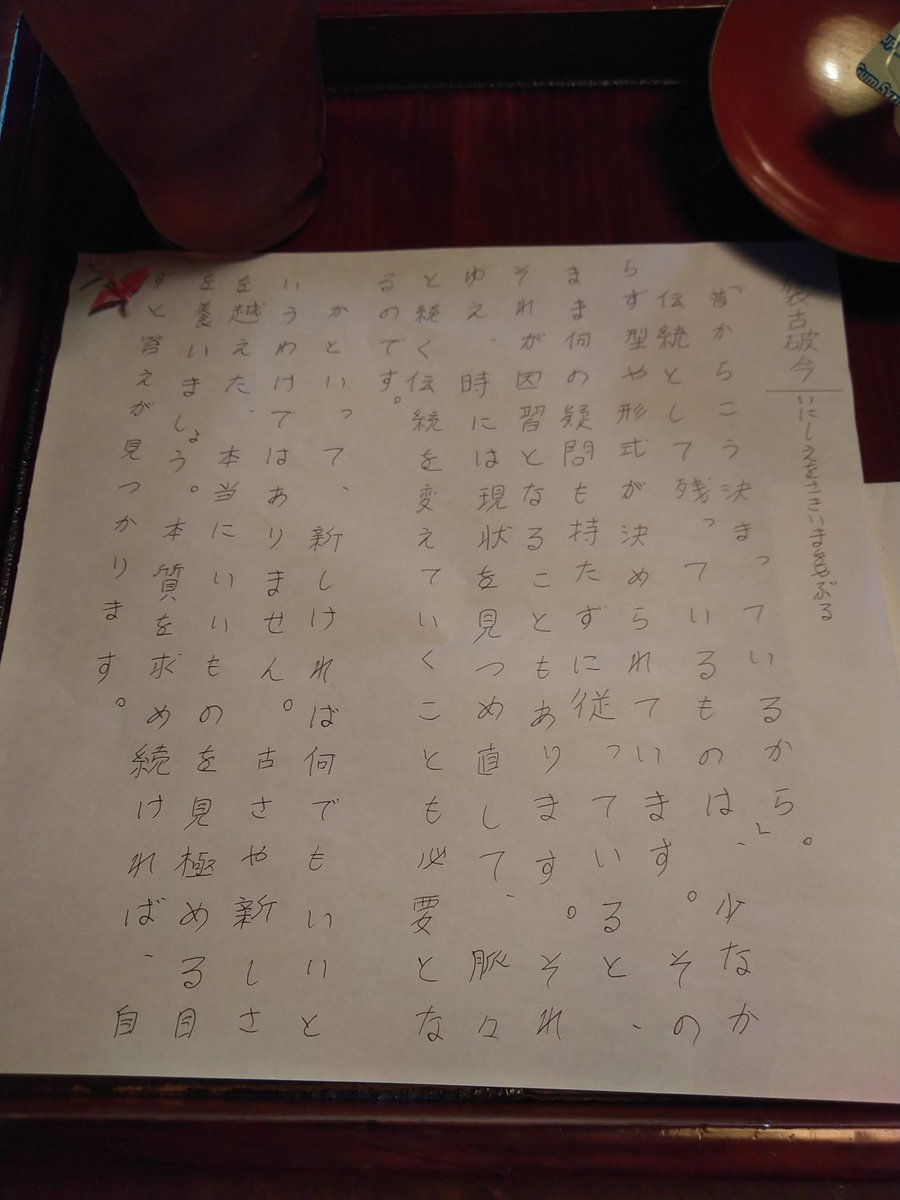 裂古破今 いにしえをさきいまをやぶる
「昔からこう決まっているから。」
伝統として残っているものは、少なか
らず型や形式が決められています。その
まま何の疑問も持たずに従っていると、
それが因習となることもあります。それ
ゆえ、時には現状を見つめ直して、脈々
と続く伝統を変えていくことも必要とな
るのです。
かといって、新しければ何でもいいと
いうわけではありません。古さや新しさ
を越えた、本当にいいものを見極める目
を養いましょう。本質を求め続ければ、自
ずと答えが見つかります。